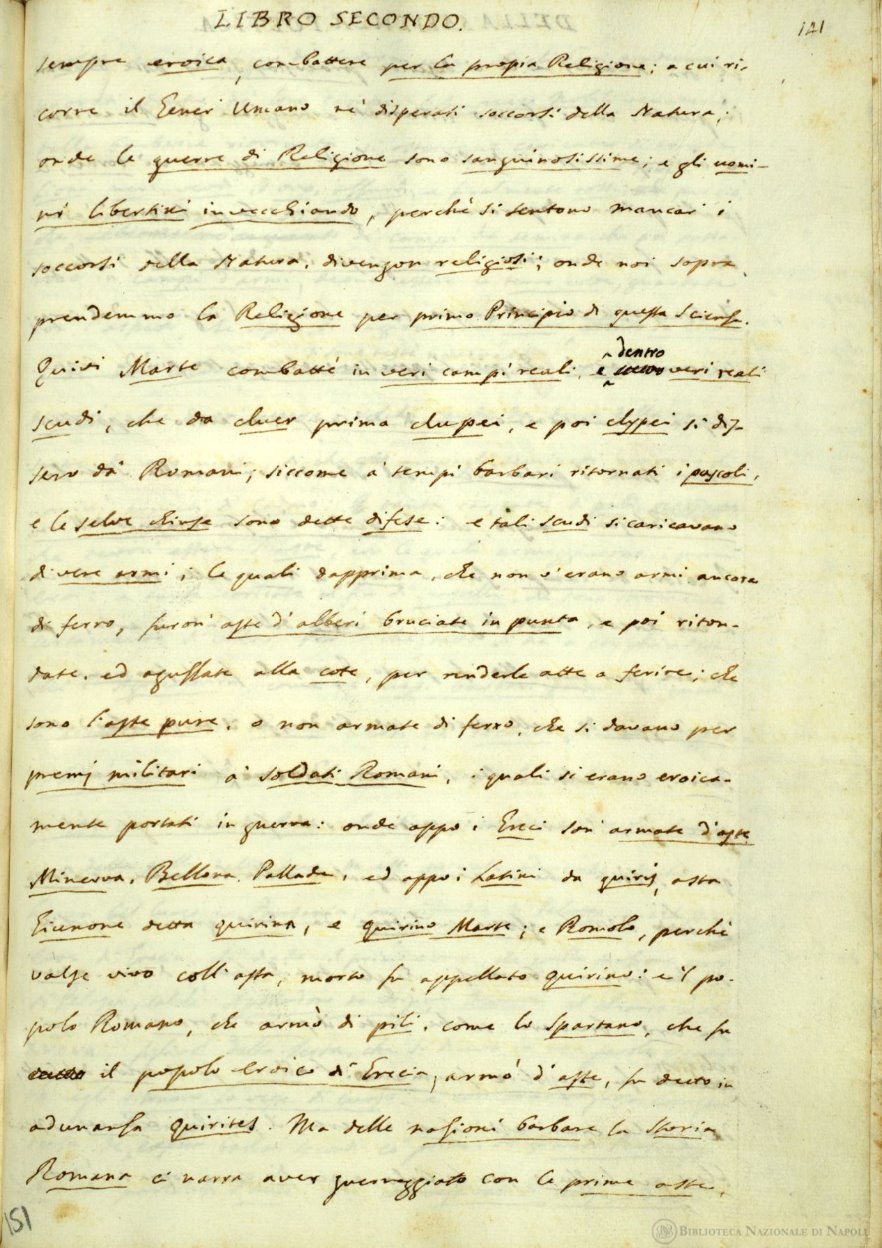 LIBRO SECONDO.
141
sempre eroica, combattere per la propia Religione; a cui ri-
corre il Gener Umano ne' disperati soccorsi della Natura;
onde le guerre di Religione sono sanguinosissime; e gli uomi-
ni libertini invecchiando, perchè si sentono mancar' i
soccorsi della Natura, divengon religiosi; onde noi sopra
prendemmo la Religione per primo Principio di questa Scienza.
Quivi Marte combattè in veri campi reali, e dentro veri reali
scudi, che da cluer prima clupei, e poi clypei si dis-
sero da' Romani; siccome a' tempi barbari ritornati i pascoli,
e le selve chiuse sono dette difese: e tali scudi si caricavano
di vere armi; le quali dapprima, che non v'erano armi ancora
di ferro, furon' aste d'alberi bruciate in punta, e poi riton-
date, ed aguzzate alla cote, per renderle atte a ferire; che
sono l'aste pure, o non armate di ferro, che si davano per
premj militari a' soldati Romani, i quali si erano eroica-
mente portati in guerra: onde appo i Greci son' armate d'aste
Minerva, Bellona, Pallade, ed appo i Latini da quiris, asta
Giunone detta quirina, e quirino Marte; e Romolo, perchè
valse vivo coll'asta, morto fu appellato quirino: e 'l po-
polo Romano, che armò di pili, come lo Spartano, che fu
il popolo eroico di Grecia, armò d'aste, fu detto in
adunanza quirites. Ma delle nazioni barbare la Storia
Romana ci narra aver guerreggiato con le prime aste,
151
BIBLIOTECA NAZIONALE DI NAPOLI